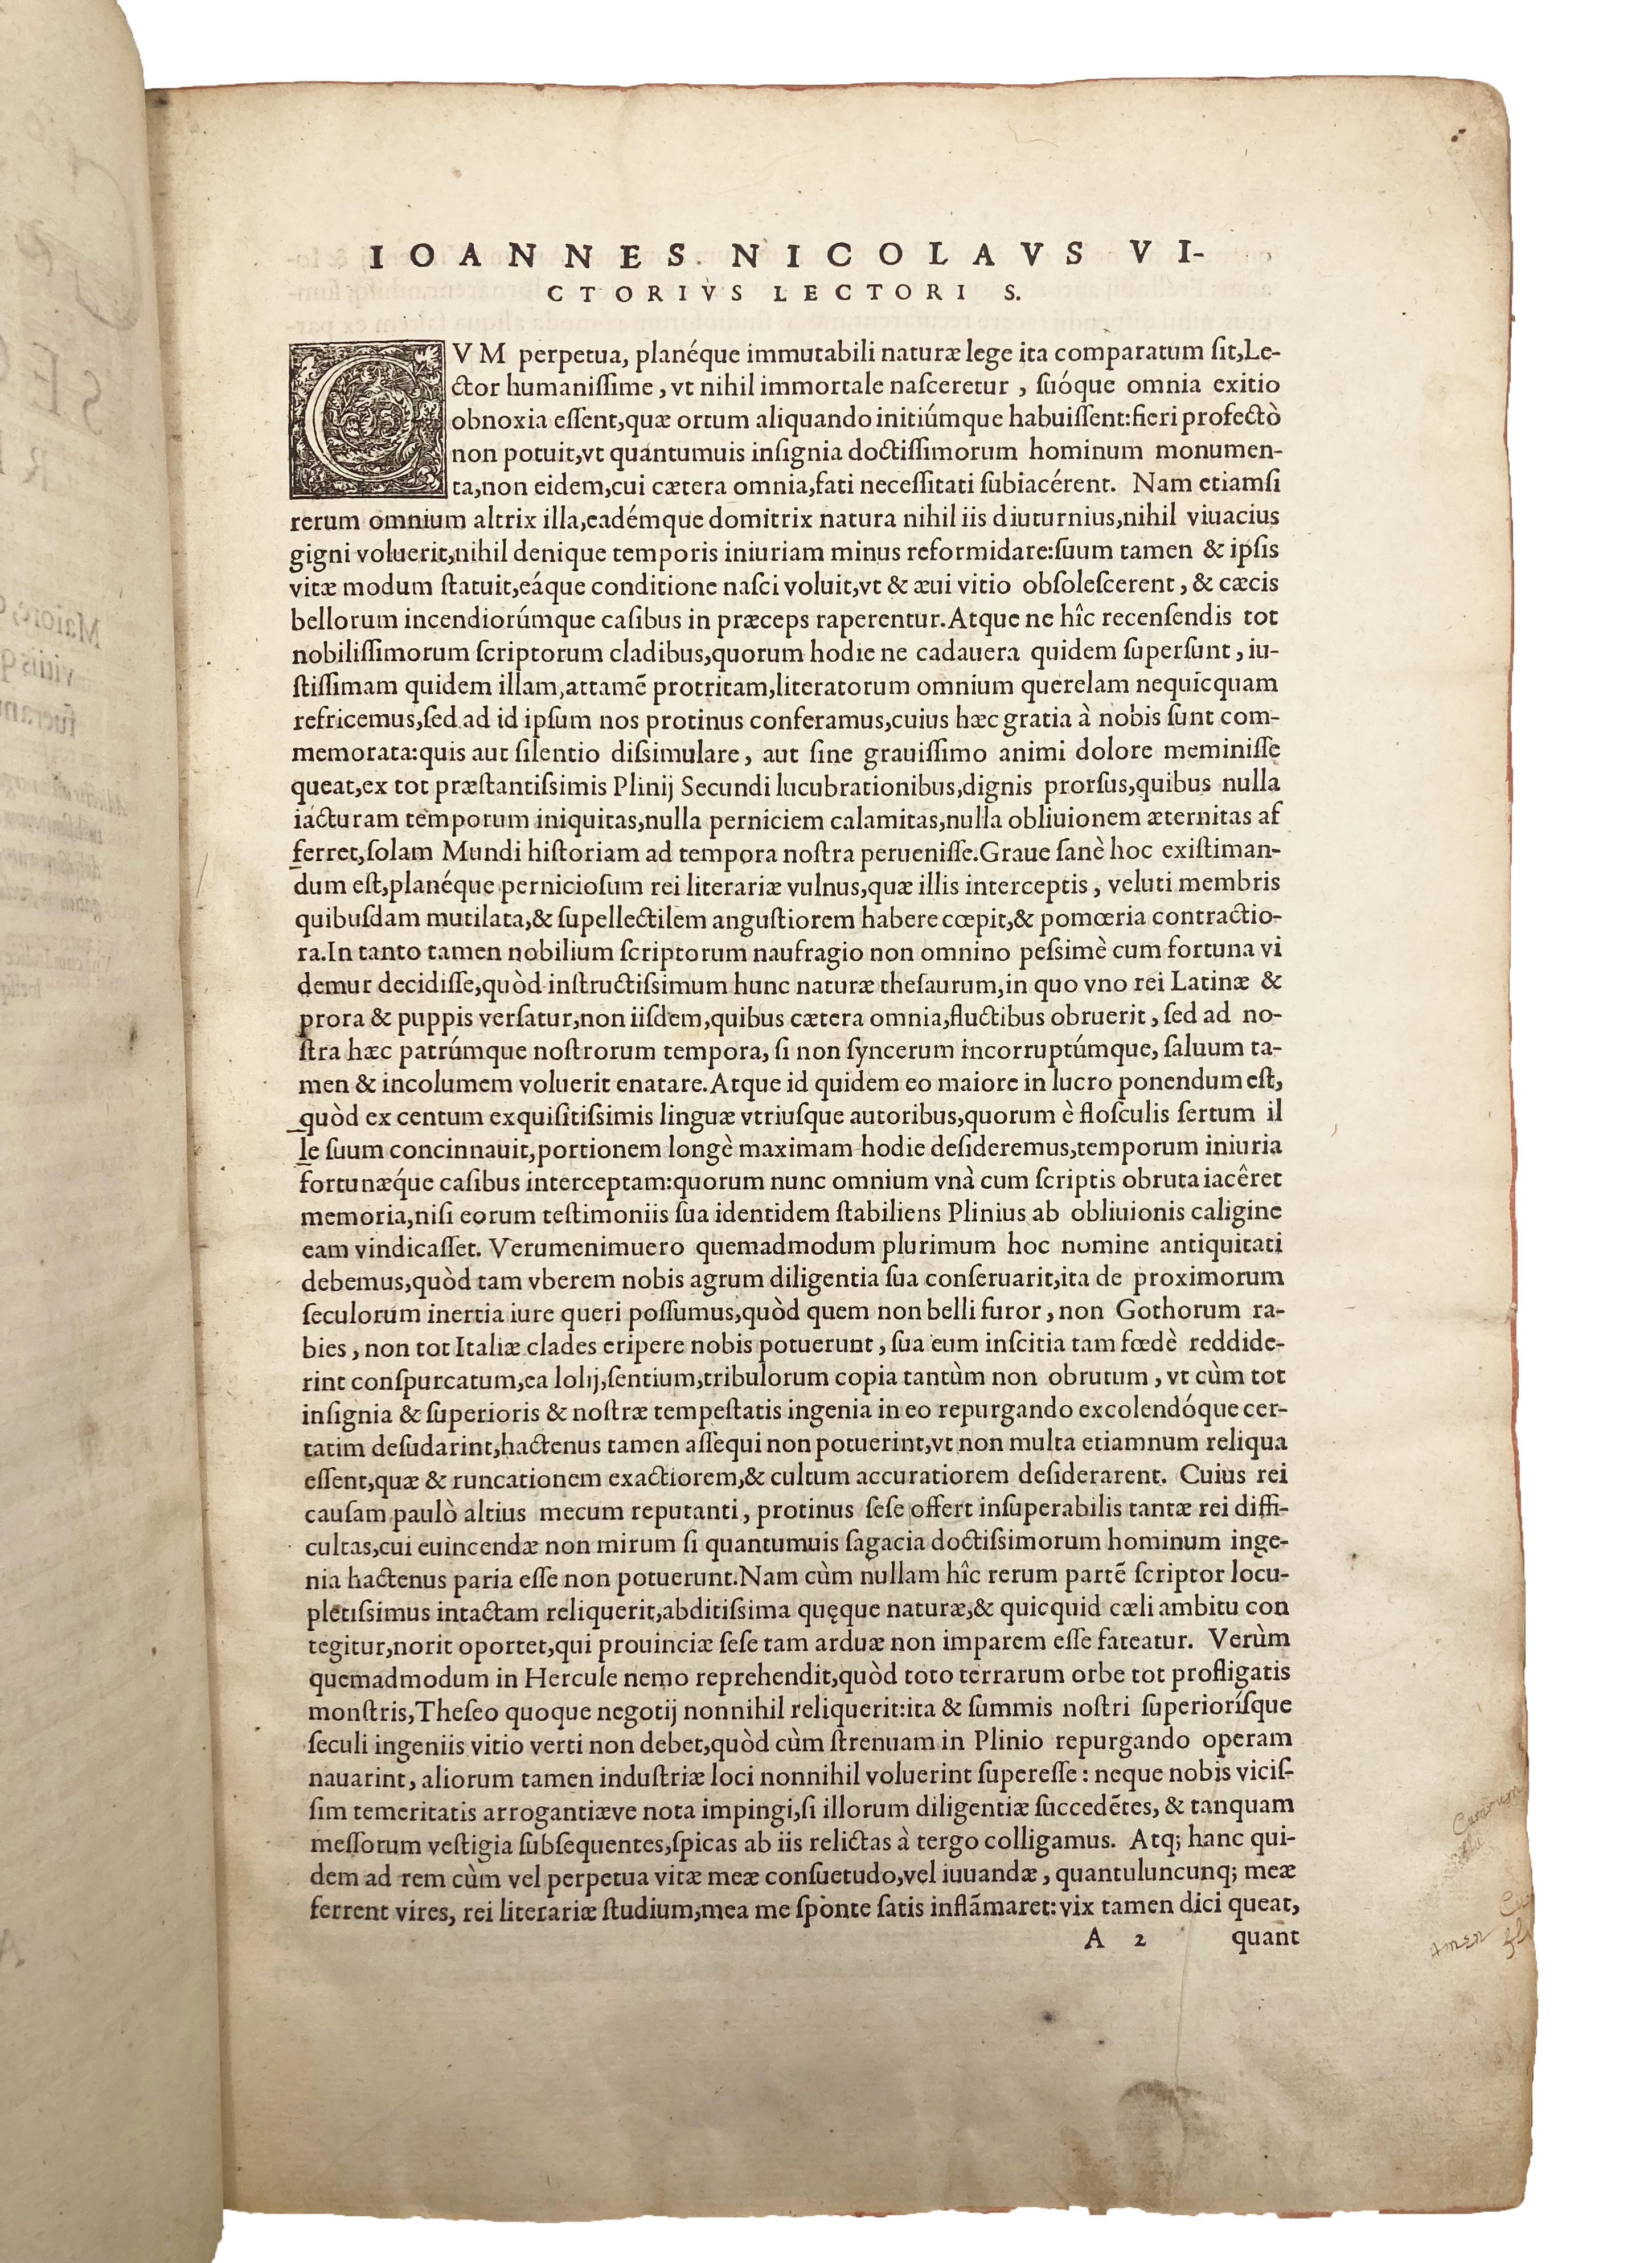 IOANNES NICOLAVS VI-
CTORIVS LECTORI S.
CVM perpetua, planéque immutabili naturæ lege ita comparatum ſit,Le-
ctor humaniſſime, vt nihil immortale naſceretur, ſuóque omnia exitio
obnoxia eſſent,quæ ortum aliquando initiúmque habuiſſent:fieri profectò
non potuit,vt quantumuis inſignia doctiſſimorum hominum monumen-
ta,non eidem,cui cætera omnia,fati neceſſitati ſubiacérent. Nam etiamſi
rerum omnium altrix illa,eadémque domitrix natura nihil iis diuturnius,nihil viuacius
gigni voluerit,nihil denique temporis iniuriam minus reformidare:ſuum tamen & ipſis
vitæ modum ſtatuit,eáque conditione naſci voluit,vt & æui vitio obſoleſcerent, & cæcis
bellorum incendiorúmque caſibus in præceps raperentur.Atque ne hîc recenſendis tot
nobiliſſimorum ſcriptorum cladibus,quorum hodie ne cadauera quidem ſuperſunt, iu-
ſtiſſimam quidem illam,attamē protritam,literatorum omnium querelam nequicquam
refricemus,ſed ad id ipſum nos protinus conferamus,cuius hæc gratia à nobis ſunt com-
memorata:quis aut ſilentio diſsimulare, aut ſine grauiſſimo animi dolore meminiſſe
queat,ex tot præſtantiſsimis Plinij Secundi lucubrationibus,dignis prorſus,quibus nulla
iacturam temporum iniquitas,nulla perniciem calamitas,nulla obliuionem æternitas af
ferret,ſolam Mundi hiſtoriam ad tempora noſtra perueniſſe.Graue ſanè hoc exiſtiman-
dum eſt,planéque pernicioſum rei literariæ vulnus,quæ illis interceptis, veluti membris
quibuſdam mutilata,& ſupellectilem anguſtiorem habere cœpit,& pomœria contractio-
ra.In tanto tamen nobilium ſcriptorum naufragio non omnino peſsimè cum fortuna vi
demur decidiſſe,quòd inſtructiſsimum hunc naturæ theſaurum,in quo vno rei Latinæ &
prora & puppis verſatur,non iiſdem,quibus cætera omnia,fluctibus obruerit, ſed ad no-
ſtra hæc patrúmque noſtrorum tempora, ſi non ſyncerum incorruptúmque, ſaluum ta-
men & incolumem voluerit enatare.Atque id quidem eo maiore in lucro ponendum eſt,
quòd ex centum exquiſitiſsimis linguæ vtriuſque autoribus,quorum è floſculis ſertum il
le ſuum concinnauit,portionem longè maximam hodie deſideremus,temporum iniuria
fortunæque caſibus interceptam:quorum nunc omnium vnà cum ſcriptis obruta iacêret
memoria,niſi eorum teſtimoniis ſua identidem ſtabiliens Plinius ab obliuionis caligine
eam vindicaſſet. Verumenimuero quemadmodum plurimum hoc nomine antiquitati
debemus,quòd tam vberem nobis agrum diligentia ſua conſeruarit,ita de proximorum
ſeculorum inertia iure queri poſſumus,quòd quem non belli furor, non Gothorum ra-
bies, non tot Italiæ clades eripere nobis potuerunt, ſua eum inſcitia tam fœdè reddide-
rint conſpurcatum,ea lolij,ſentium,tribulorum copia tantùm non obrutum, vt cùm tot
inſignia & ſuperioris & noſtræ tempeſtatis ingenia in eo repurgando excolendóque cer-
tatim deſudarint,hactenus tamen aſſequi non potuerint,vt non multa etiamnum reliqua
eſſent,quæ & runcationem exactiorem,& cultum accuratiorem deſiderarent. Cuius rei
cauſam paulò altius mecum reputanti, protinus ſeſe offert inſuperabilis tantæ rei diffi-
cultas,cui euincendæ non mirum ſi quantumuis ſagacia doctiſsimorum hominum inge-
nia hactenus paria eſſe non potuerunt.Nam cùm nullam hîc rerum partē ſcriptor locu-
pletiſsimus intactam reliquerit,abditiſsima quęque naturæ,& quicquid cæli ambitu con
tegitur,norit oportet,qui prouinciæ ſeſe tam arduæ non imparem eſſe fateatur. Verùm
quemadmodum in Hercule nemo reprehendit,quòd toto terrarum orbe tot profligatis
monſtris,Theſeo quoque negotij nonnihil reliquerit:ita & ſummis noſtri ſuperioríſque
ſeculi ingeniis vitio verti non debet,quòd cùm ſtrenuam in Plinio repurgando operam
nauarint, aliorum tamen induſtriæ loci nonnihil voluerint ſupereſſe: neque nobis viciſ-
ſim temeritatis arrogantiæve nota impingi,ſi illorum diligentiæ ſuccedētes, & tanquam
meſſorum veſtigia ſubſequentes,ſpicas ab iis relictas à tergo colligamus. Atq; hanc qui-
dem ad rem cùm vel perpetua vitæ meæ conſuetudo,vel iuuandæ, quantuluncunq; meæ
ferrent vires, rei literariæ ſtudium,mea me ſponte ſatis inflāmaret: vix tamen dici queat,
A 2 quant
Amen